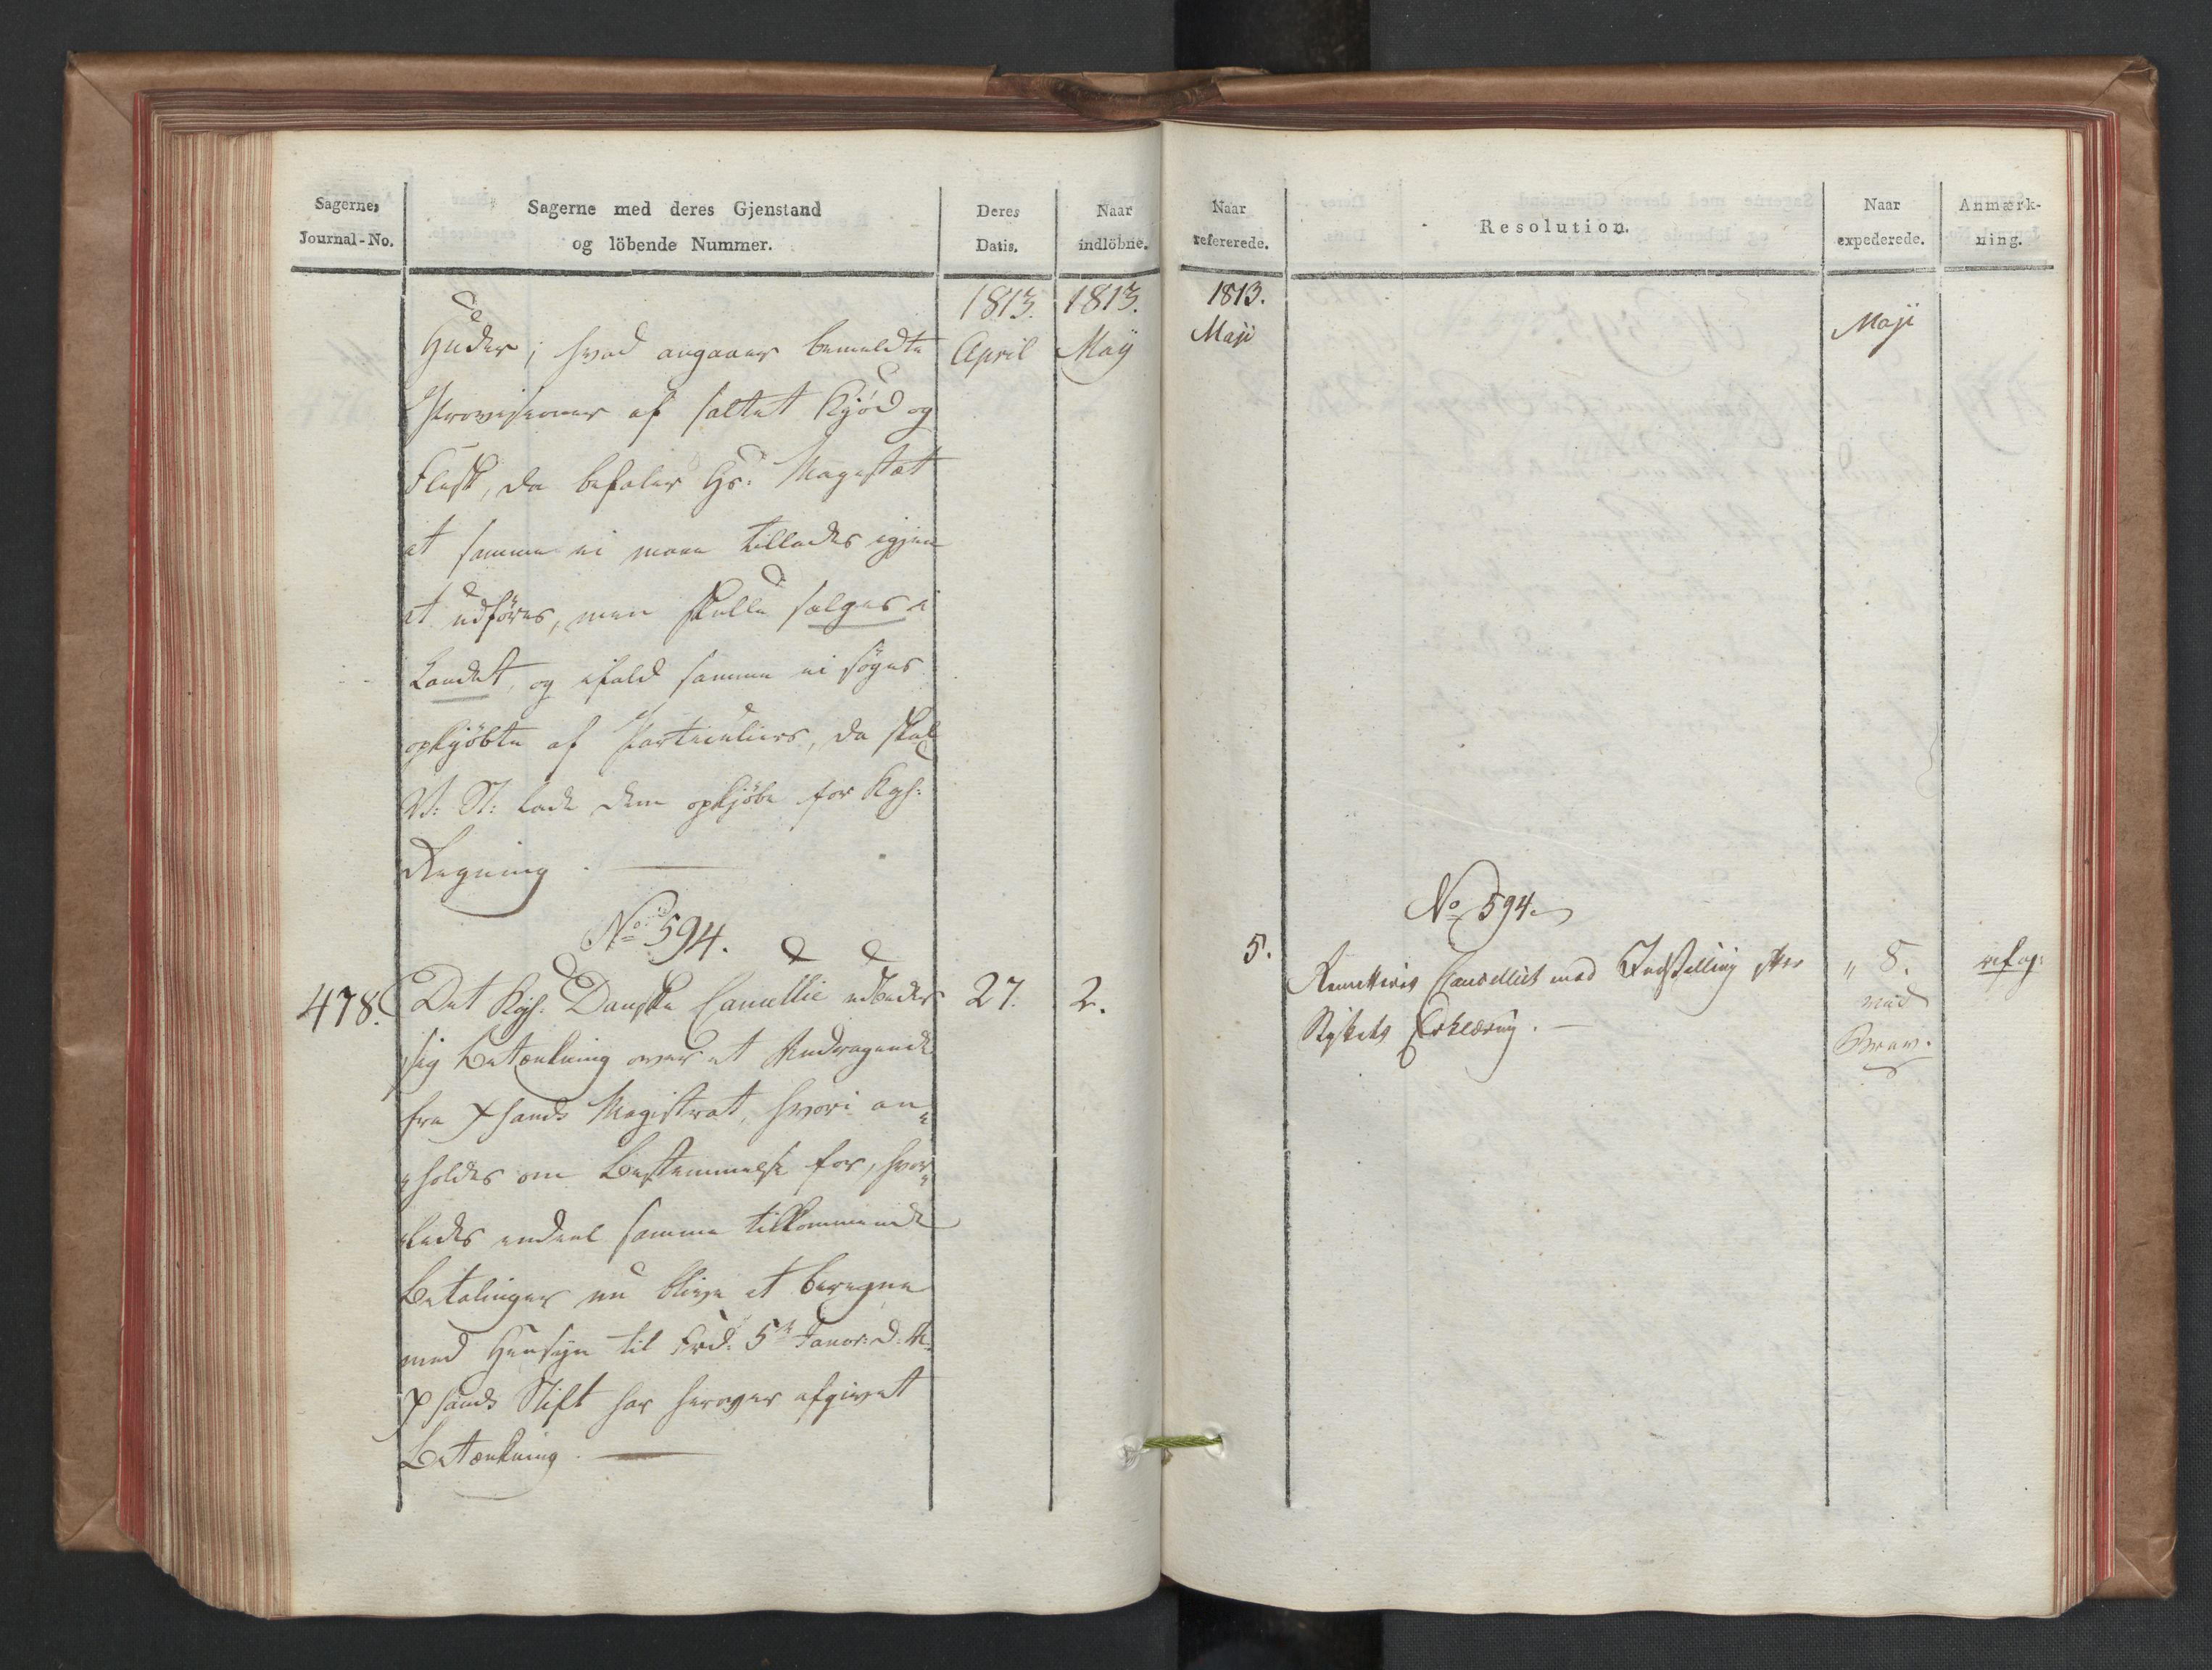 Sagernes
Journal-No.
Sagerne med deres Gjenstand
og löbende Nummer.
Deres
Datis.
Naar
indlöbne.
1813.
April
1813.
Maÿ
Huder; hvad angaaer bemeldte
Provisioner af saltet Kjød og
Flesk, da befaler Hs: Majestæt
at samme ei maae tillades igjen
at udföres, men skulle sælges i
Landet, og ifald samme ei söges
opkjöbte af Particuliers, da skal
V: St: lade dem opkjöbe for Kgs:
Regning.
No 594.
478.
Det Kgs. Danske Cancellie udbeder
27.
2.
sig Betænkning over et Andragende
fra Xsands Magistrat, hvori an„
„holdes om Bestemmelse for, hvor„
„ledes endeel samme tilkommende
Betalinger nu blive at beregne
med Hensyn til Frd: 5te Januar: d: A.
Xsands Stift har herover afgivet
Betænkning.
Naar
refererede.
Resolution.
Naar
expederede.
Anmærk-
ning.
1813.
Maji
Maji
No 594.
5.
Remitteres Cancelliet med Indstilling efter
Stykets Erklæring.
„ 8.
med
Brev.